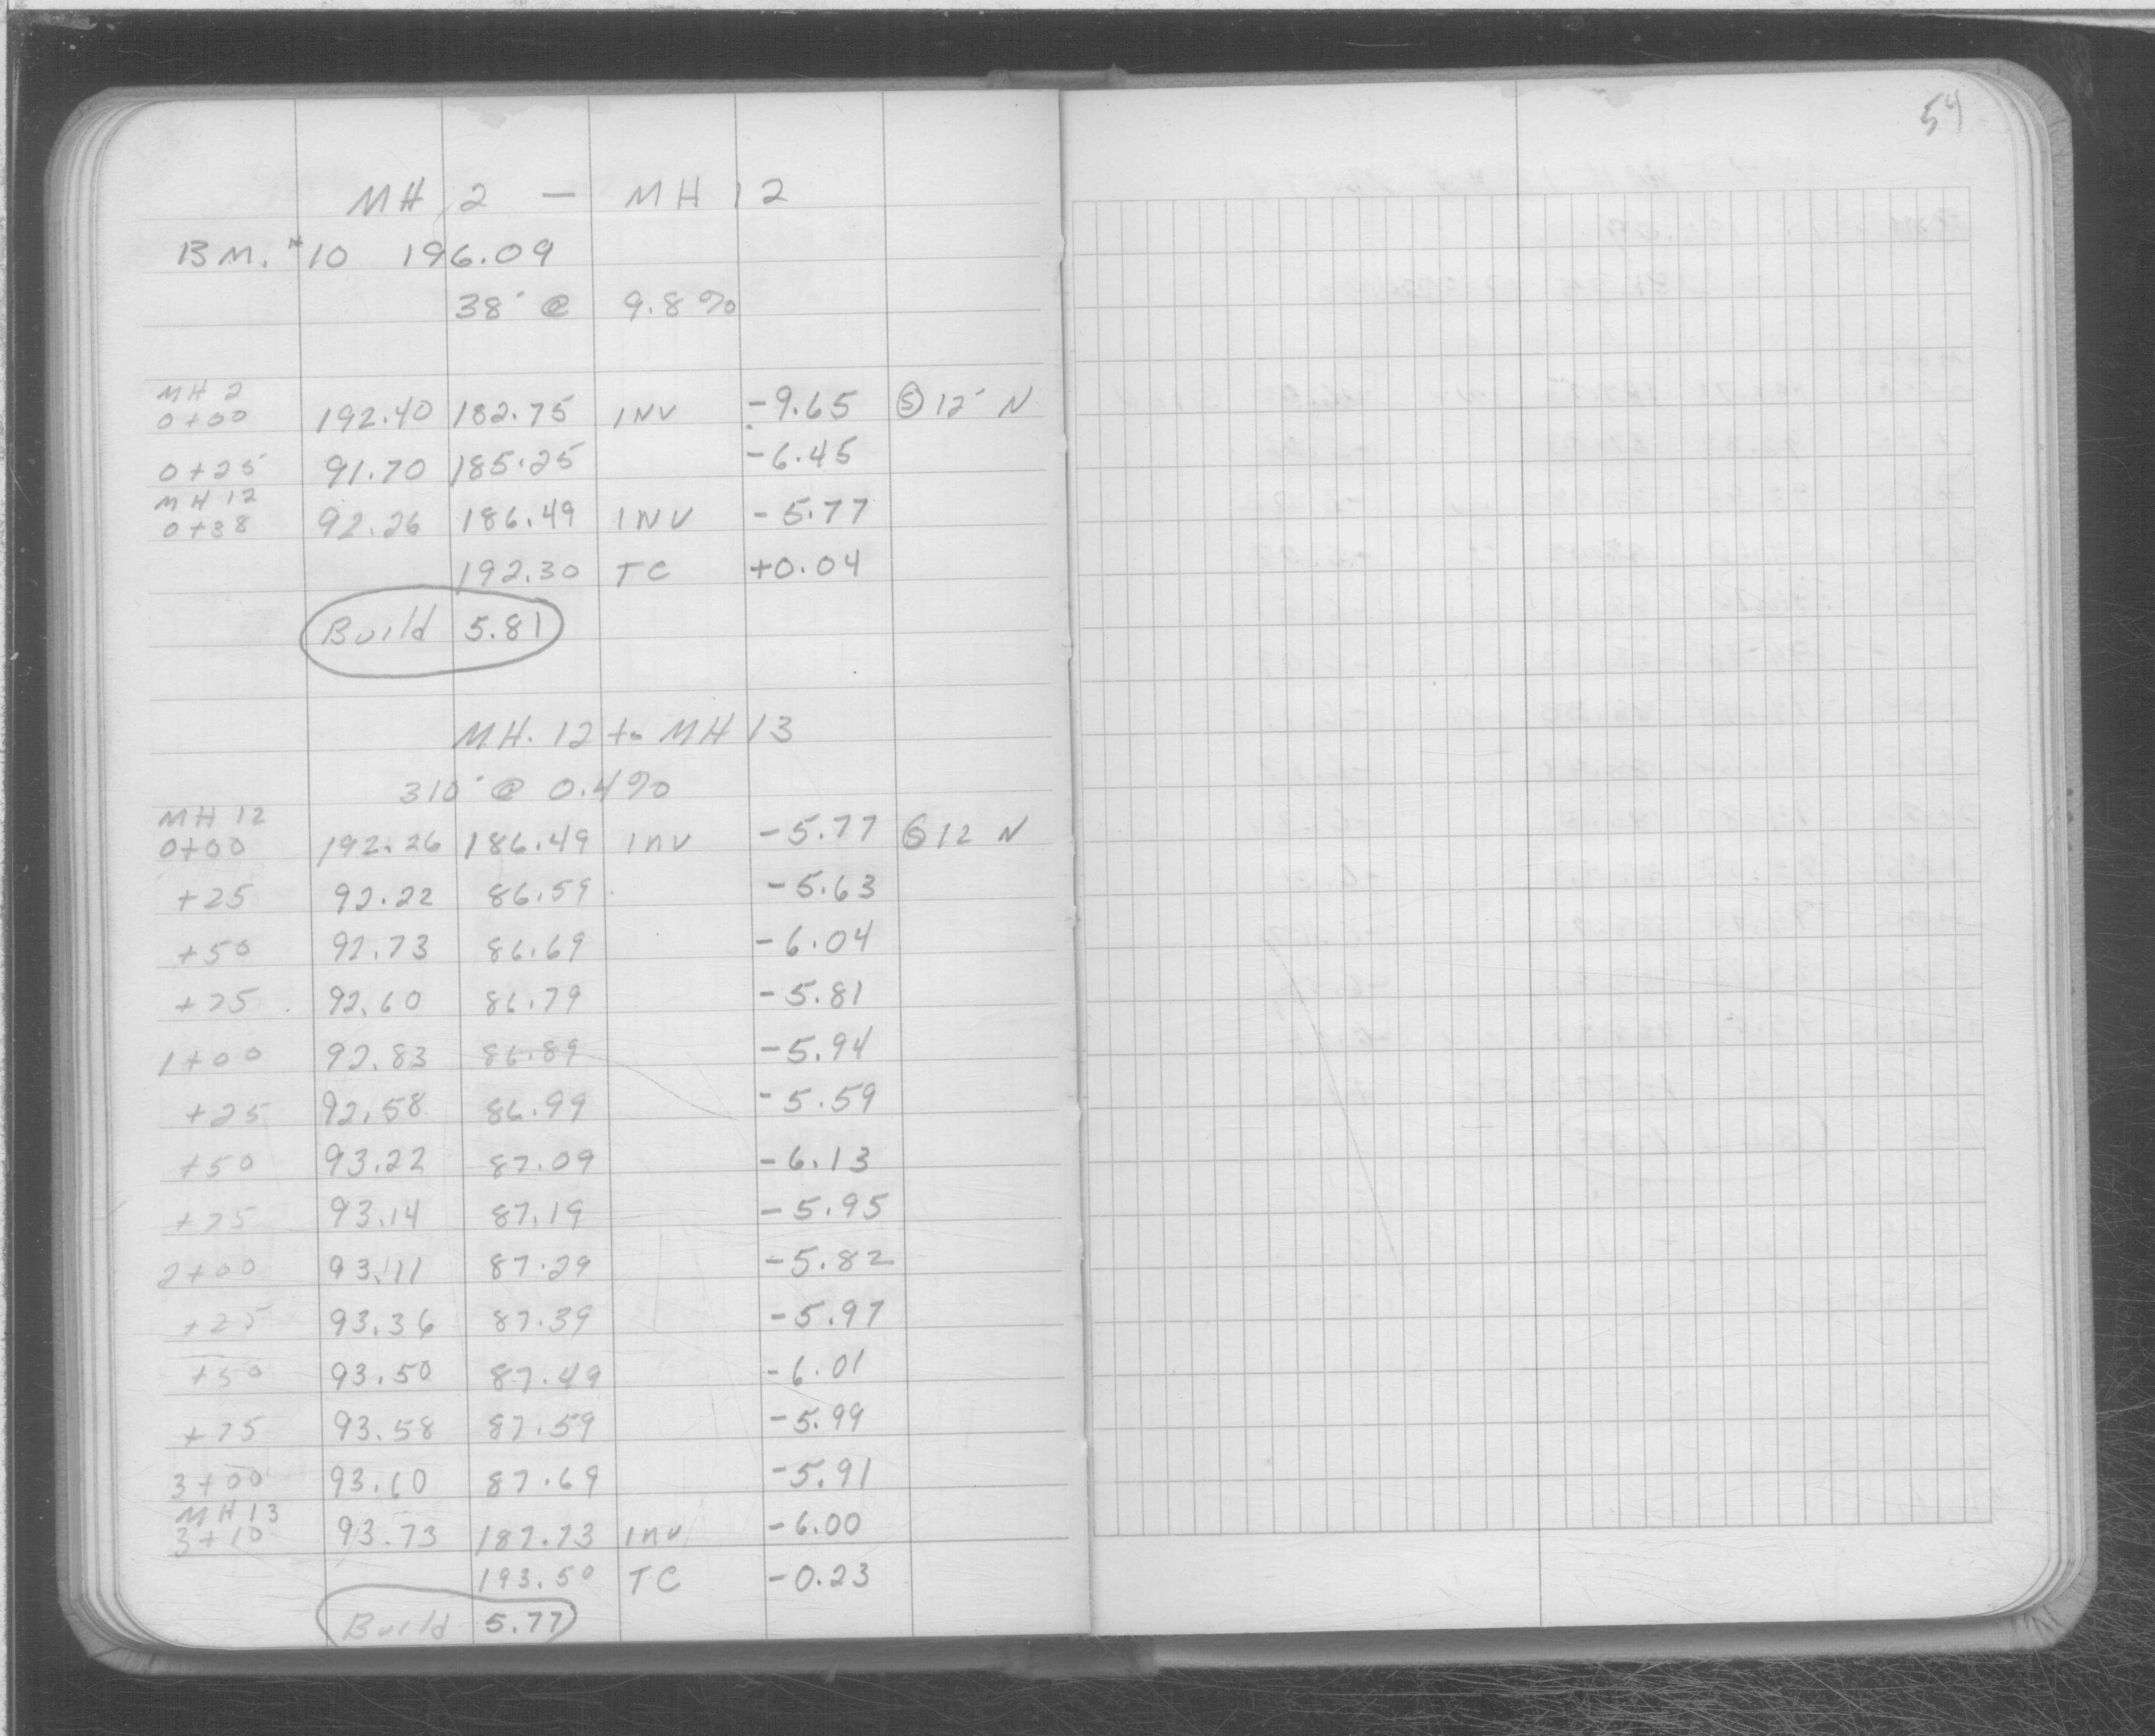 54
MH 2 — MH 12
BM. #10 196.09
38' @ 9.8%
MH 2
0+00 192.40 182.75 INV -9.65 Ⓢ 12' N
0+25 91.70 185.25 -6.45
MH 12
0+38 92.26 186.49 INV -5.77
192.30 TC +0.04
Build 5.81
MH. 12 to MH 13
310' @ 0.4%
MH 12
0+00 192.26 186.49 INV -5.77 Ⓢ 12 N
+25 92.22 86.59 -5.63
+50 92.73 86.69 -6.04
+75 92.60 86.79 -5.81
1+00 92.83 86.89 -5.94
+25 92.58 86.99 -5.59
+50 93.22 87.09 -6.13
+75 93.14 87.19 -5.95
2+00 93.11 87.29 -5.82
+25 93.36 87.39 -5.97
+50 93.50 87.49 -6.01
+75 93.58 87.59 -5.99
3+00 93.60 87.69 -5.91
MH 13
3+10 93.73 187.73 INV -6.00
193.50 TC -0.23
Build 5.77